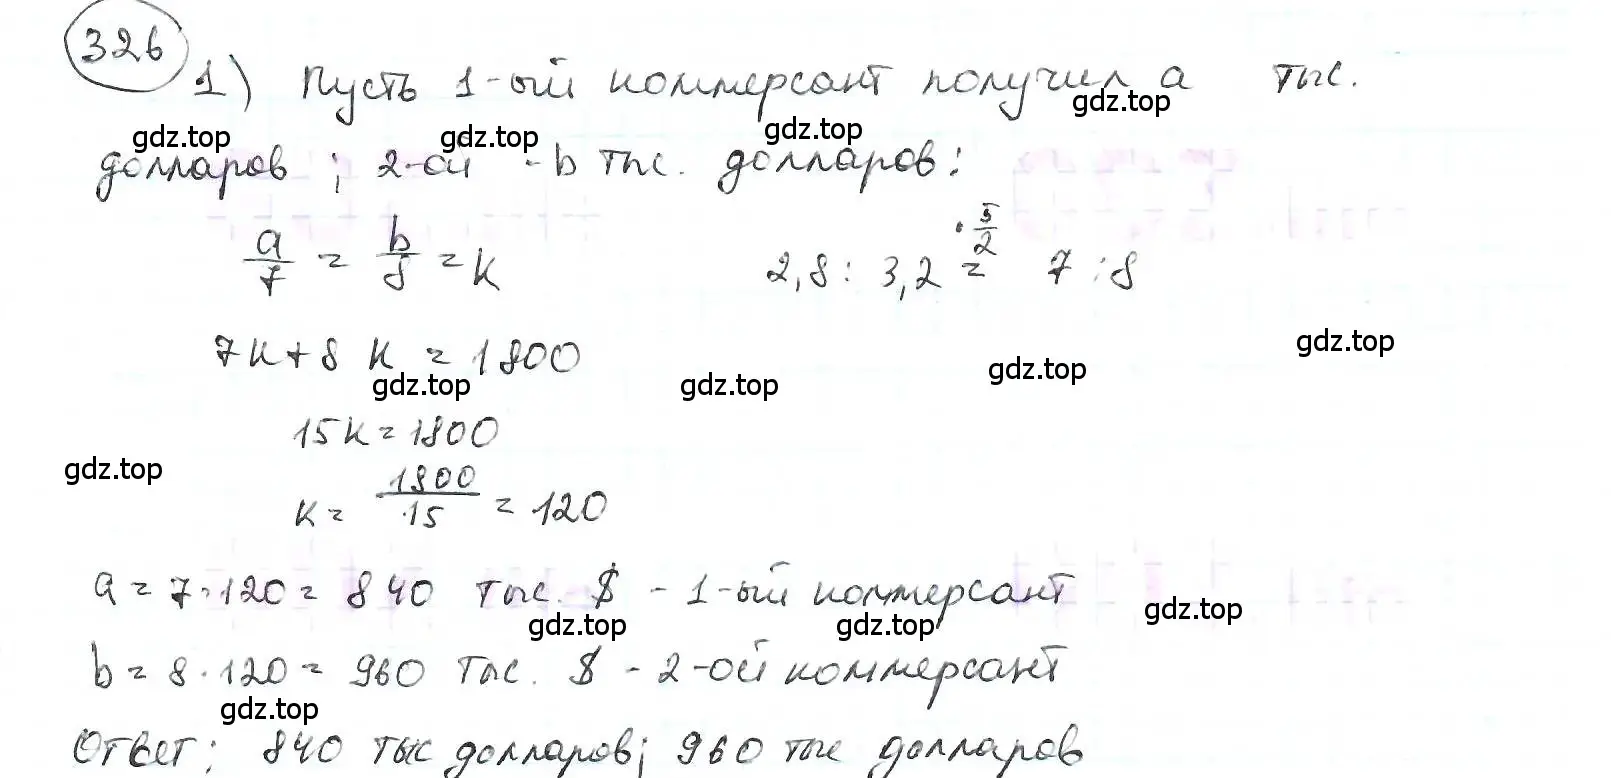 326
1) Пусть 1-ый коммерсант получил a тыс.
gdz.top gdz.top gdz.top gdz.top
долларов; 2-ой - b тыс. долларов:
a/7 = b/8 = k
2,8 : 3,2 =^{· 5/2} 7 : 8
7k+8k = 1800
gdz.top gdz.top gdz.top gdz.top
15k = 1800
gdz.top
k = 1800/15 = 120
a = 7·120 = 840 тыс. $ - 1-ый коммерсант
gdz.top gdz.top gdz.top
b = 8·120 = 960 тыс. $ - 2-ой коммерсант
gdz.top
Ответ: 840 тыс долларов; 960 тыс долларов